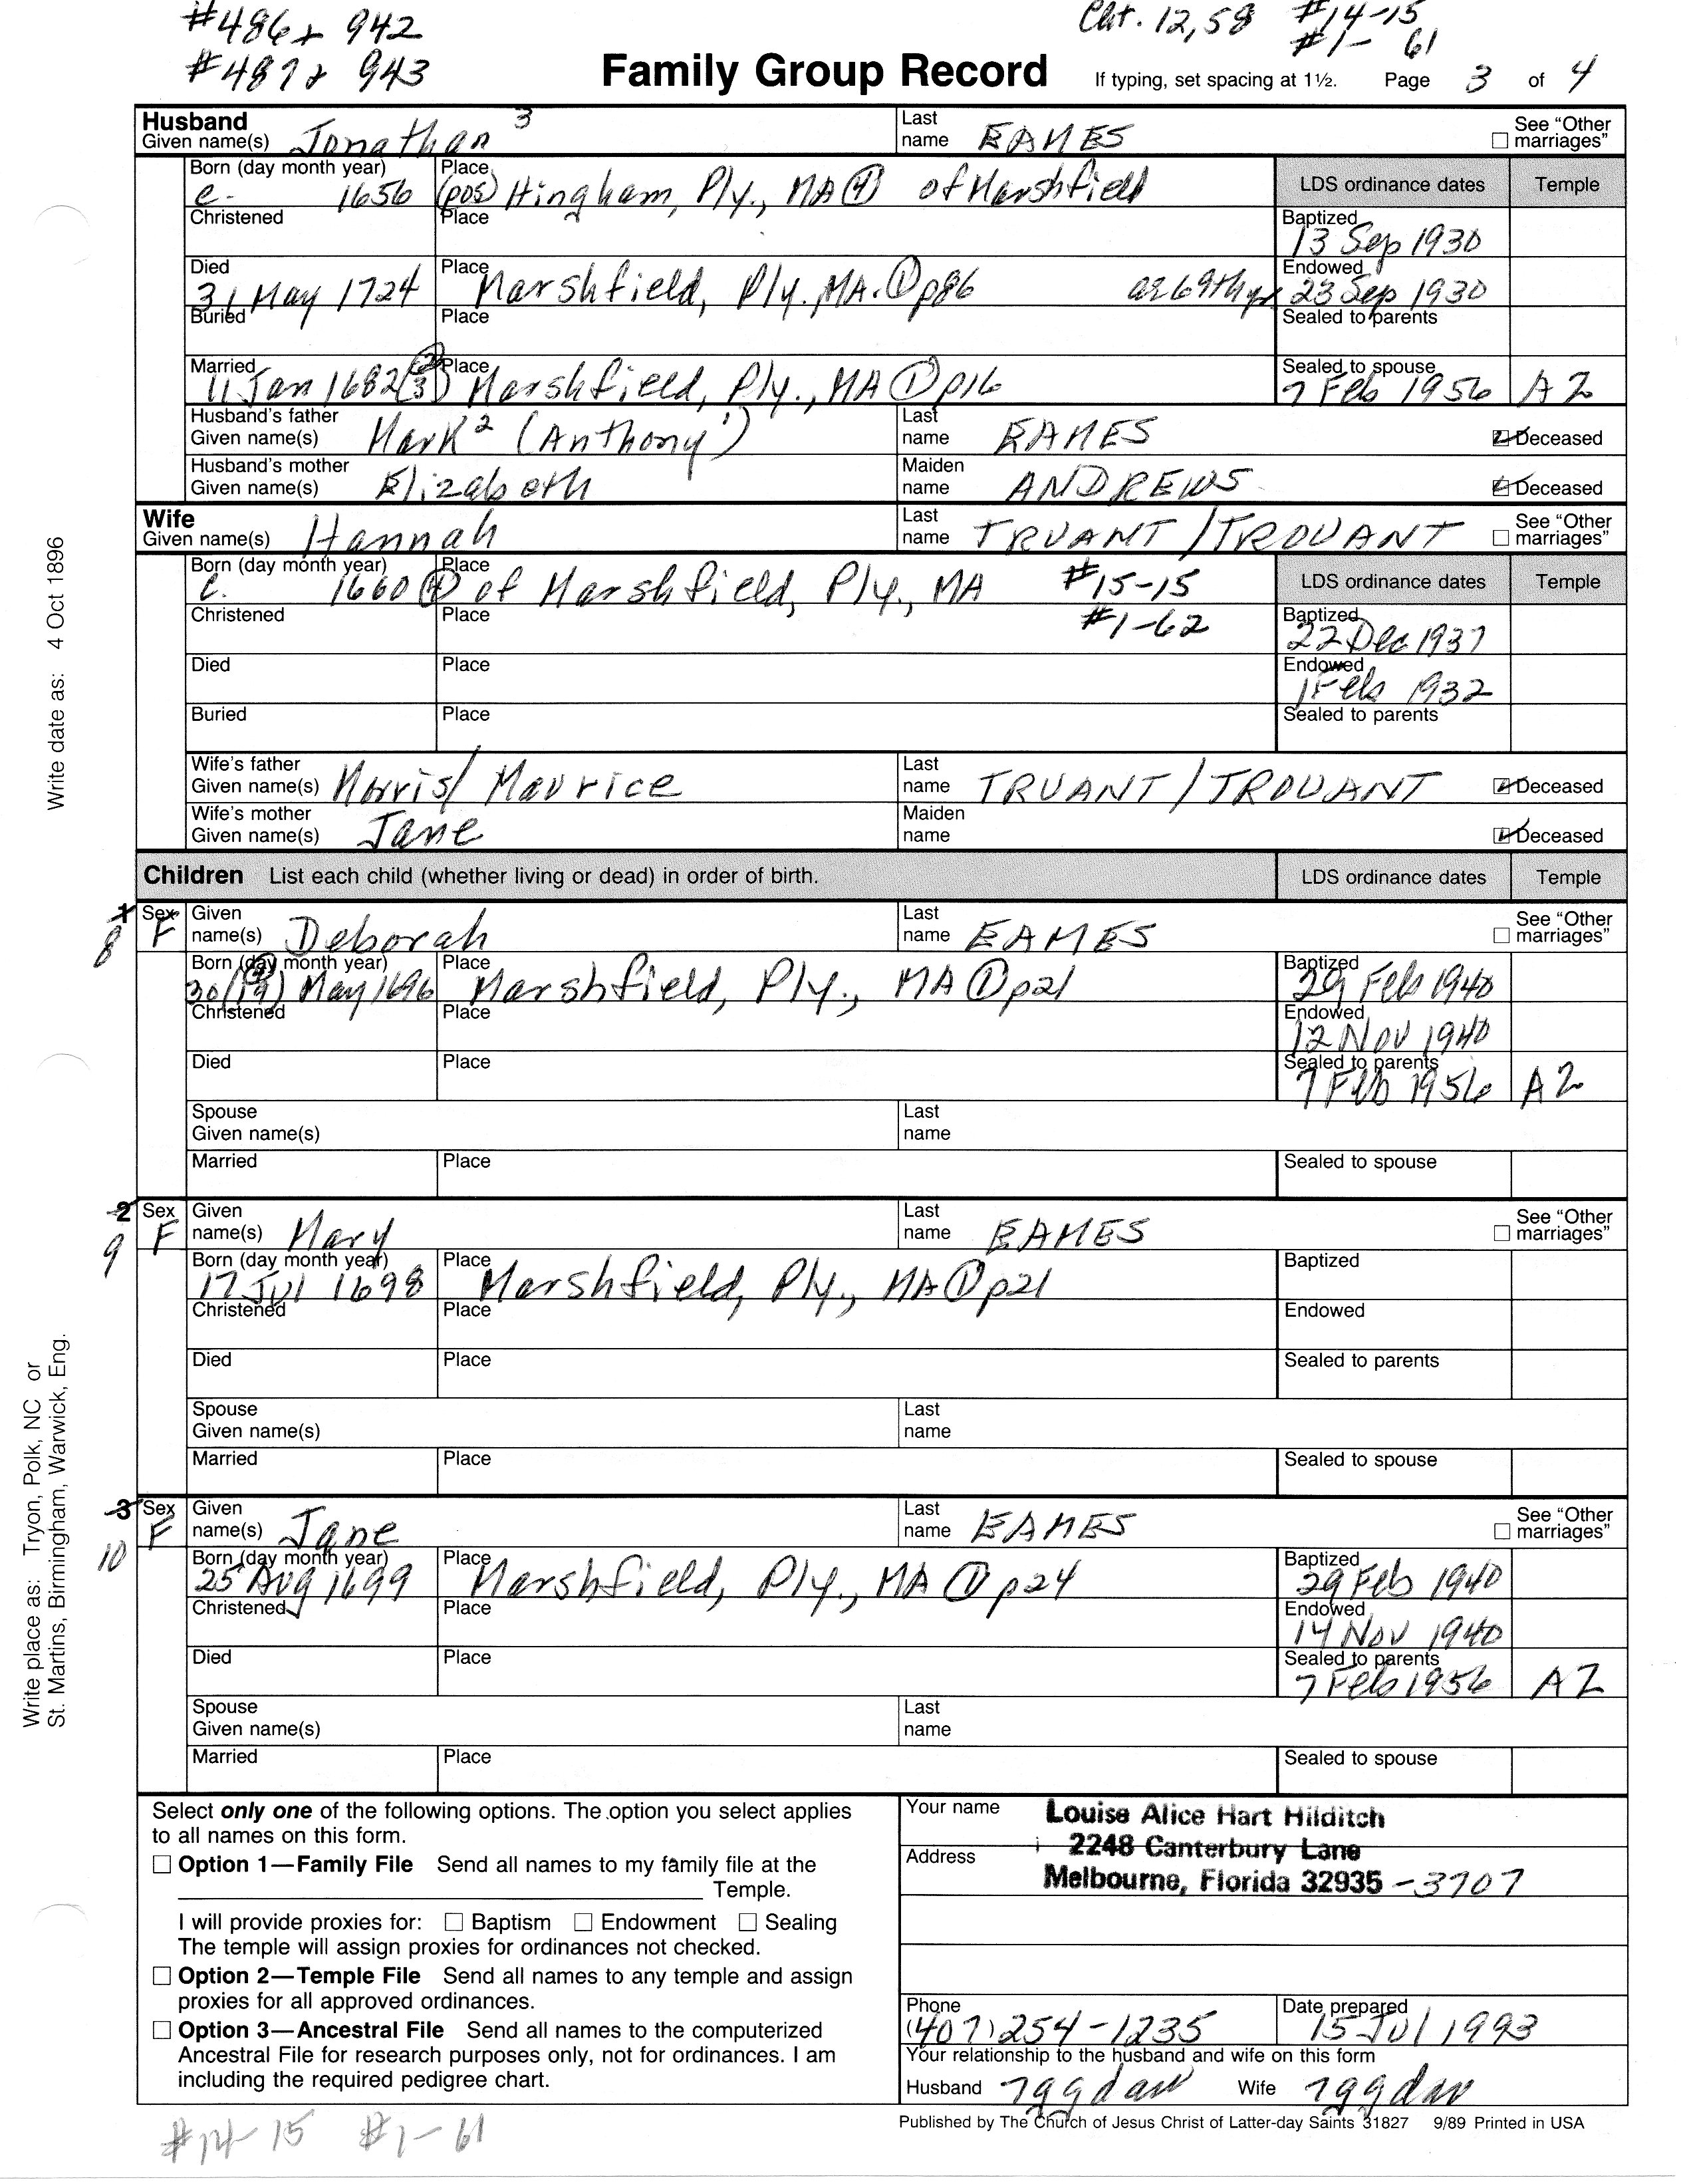 #486+ 942 Cht. 12,58 #14-15
#1- 61
#487+ 943 Family Group Record If typing, set spacing at 1½. Page 3 of 4
Husband
Given name(s) Jonathan 3 Last name EAMES See "Other marriages"
Born (day month year) c. 1656 Place (pos) Hingham, Ply., MA ④ of Marshfield LDS ordinance dates Temple
Christened Place Baptized 13 Sep 1930
Died 31 May 1724 Place Marshfield, Ply. MA. ① p86 ae 69th yr Endowed 23 Sep 1930
Buried Place Sealed to parents
Married 11 Jan 1682(3) Place Marshfield, Ply., MA ① p16 Sealed to spouse 7 Feb 1956 AZ
Husband's father
Given name(s) Mark 2 (Anthony 1) Last name EAMES Deceased
Husband's mother
Given name(s) Elizabeth Maiden name ANDREWS Deceased
Wife
Given name(s) Hannah Last name TRUANT/TROUANT See "Other marriages"
Born (day month year) c. 1660 ④ Place of Marshfield, Ply., MA #15-15 LDS ordinance dates Temple
Christened Place #1-62 Baptized 22 Dec 1937
Died Place Endowed 1 Feb 1932
Buried Place Sealed to parents
Wife's father
Given name(s) Morris/ Maurice Last name TRUANT/TROUANT Deceased
Wife's mother
Given name(s) Jane Maiden name Deceased
Children List each child (whether living or dead) in order of birth. LDS ordinance dates Temple
1 8 Sex F Given name(s) Deborah Last name EAMES See "Other marriages"
Born (day month year) 30(19) May 1696 Place Marshfield, Ply., MA ① p21 Baptized 29 Feb 1940
Christened Place Endowed 12 Nov 1940
Died Place Sealed to parents 7 Feb 1956 AZ
Spouse
Given name(s) Last name
Married Place Sealed to spouse
2 9 Sex F Given name(s) Mary Last name EAMES See "Other marriages"
Born (day month year) 17 Jul 1698 Place Marshfield, Ply., MA ① p21 Baptized
Christened Place Endowed
Died Place Sealed to parents
Spouse
Given name(s) Last name
Married Place Sealed to spouse
3 10 Sex F Given name(s) Jane Last name EAMES See "Other marriages"
Born (day month year) 25 Aug 1699 Place Marshfield, Ply., MA ① p24 Baptized 29 Feb 1940
Christened Place Endowed 14 Nov 1940
Died Place Sealed to parents 7 Feb 1956 AZ
Spouse
Given name(s) Last name
Married Place Sealed to spouse
Select only one of the following options. The option you select applies
to all names on this form.
Option 1—Family File Send all names to my family file at the
Temple.
I will provide proxies for: Baptism Endowment Sealing
The temple will assign proxies for ordinances not checked.
Option 2—Temple File Send all names to any temple and assign
proxies for all approved ordinances.
Option 3—Ancestral File Send all names to the computerized
Ancestral File for research purposes only, not for ordinances. I am
including the required pedigree chart.
Your name Louise Alice Hart Hilditch
Address 2248 Canterbury Lane
Melbourne, Florida 32935 -3707
Phone (407)254-1235 Date prepared 15 Jul 1993
Your relationship to the husband and wife on this form
Husband 7ggdau Wife 7ggdau
Published by The Church of Jesus Christ of Latter-day Saints 31827 9/89 Printed in USA
#14-15 #1-61
Write date as: 4 Oct 1896
Write place as: Tryon, Polk, NC or
St. Martins, Birmingham, Warwick, Eng.